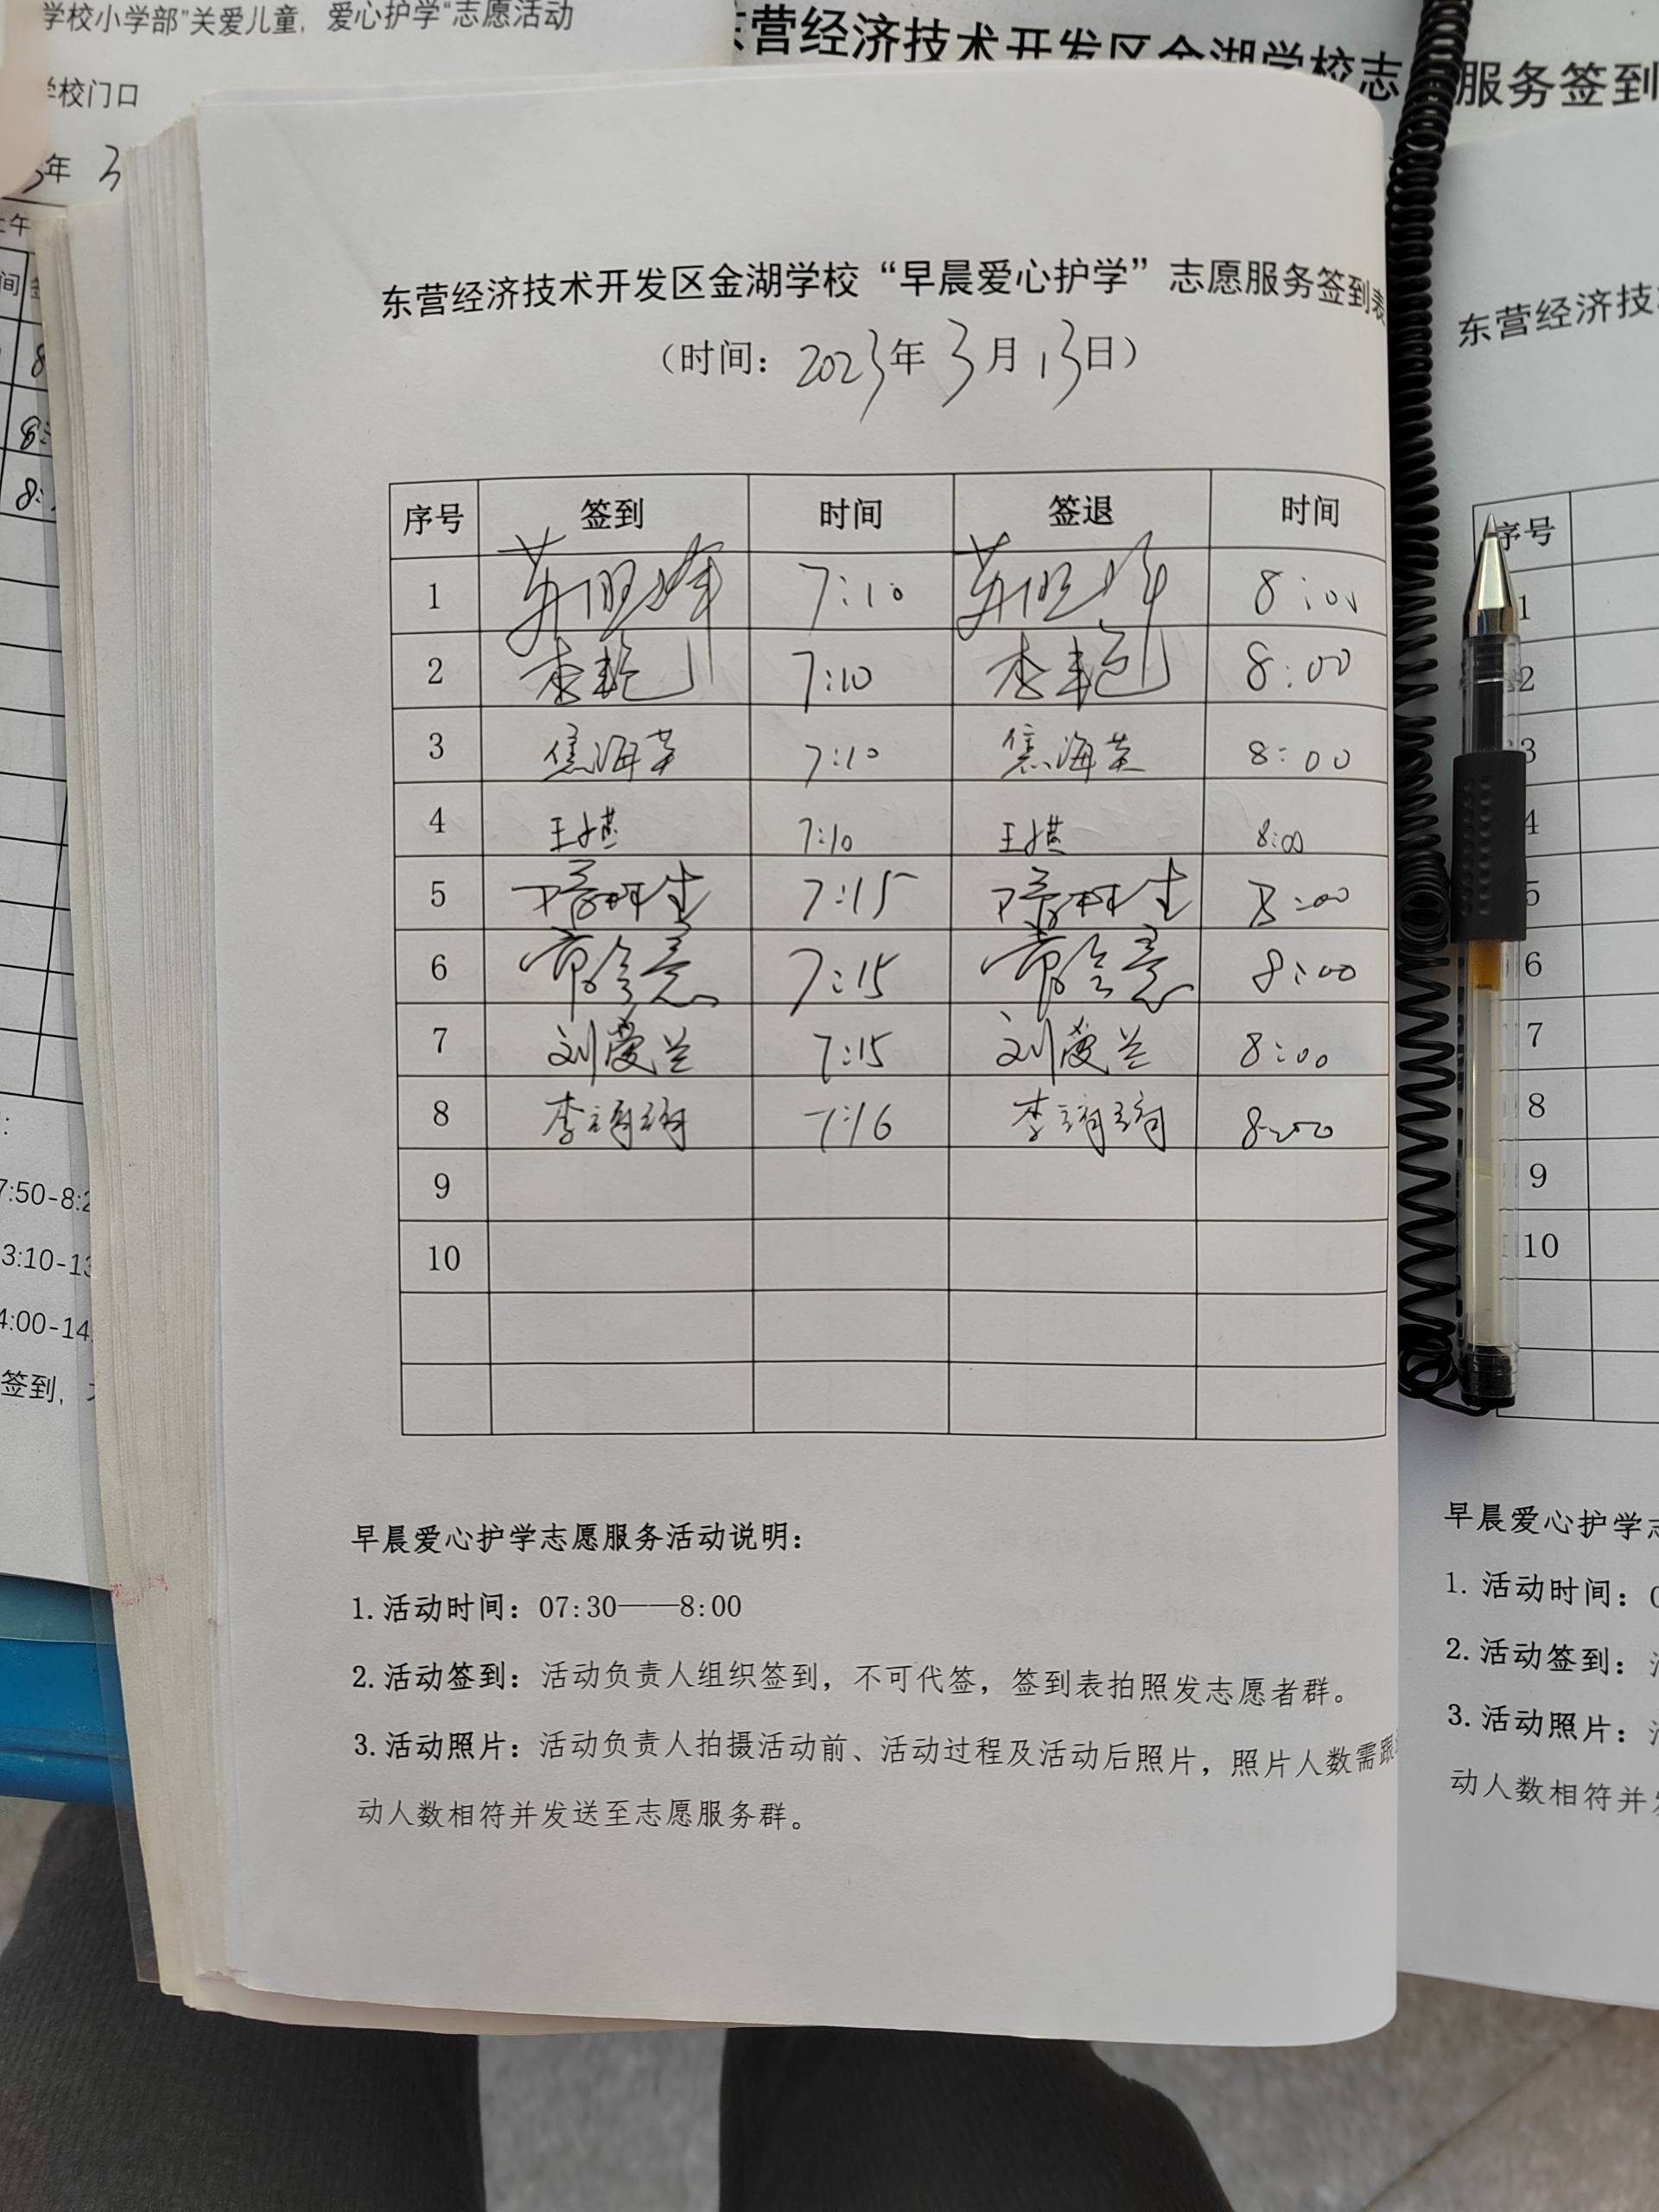 学校小学部"关爱儿童，爱心护学"志愿活动
学校门口
年 3
上午
间
8:
8:
7:50-8:2
3:10-13
4:00-14
签到，
东营经济技术开发区金湖学校志
服务签到
东营经济技术开发区金湖学校“早晨爱心护学”志愿服务签到表
（时间：2023年3月13日）
序号 签到 时间 签退 时间
1 7:10 8:00
2 李艳 7:10 李艳 8:00
3 焦海英 7:10 焦海英 8:00
4 王 7:10 王 8:00
5 7:15 8:00
6 常会意 7:15 常会意 8:00
7 刘爱兰 7:15 刘爱兰 8:00
8 李 7:16 李 8:00
9
10
早晨爱心护学志愿服务活动说明：
1.活动时间：07:30——8:00
2.活动签到：活动负责人组织签到，不可代签，签到表拍照发志愿者群。
3.活动照片：活动负责人拍摄活动前、活动过程及活动后照片，照片人数需跟
动人数相符并发送至志愿服务群。
东营经济技
序号
1
2
3
4
5
6
7
8
9
10
早晨爱心护学
1.活动时间：0
2.活动签到：
3.活动照片：
动人数相符并